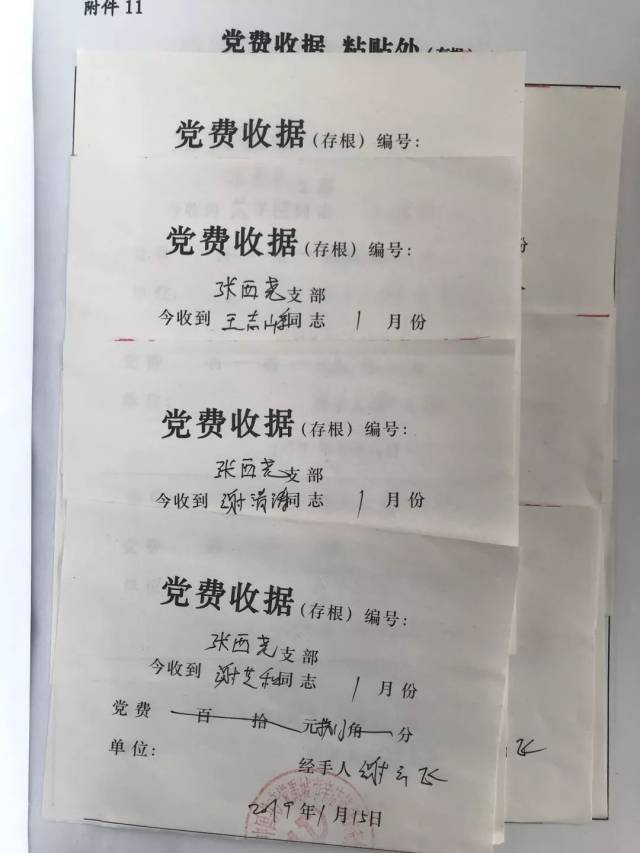 附件 11
党费收据 粘贴处(存根)
党费收据(存根) 编号:
党费收据(存根) 编号:
张西尧支部
今收到 王志峰同志 1 月份
党费收据(存根) 编号:
张西尧支部
今收到 谢清涛同志 1 月份
党费收据(存根) 编号:
张西尧支部
今收到 谢芝和同志 1 月份
党费 百 拾 元 角 分
单位:
经手人 谢云飞
2019年1月15日
份
飞